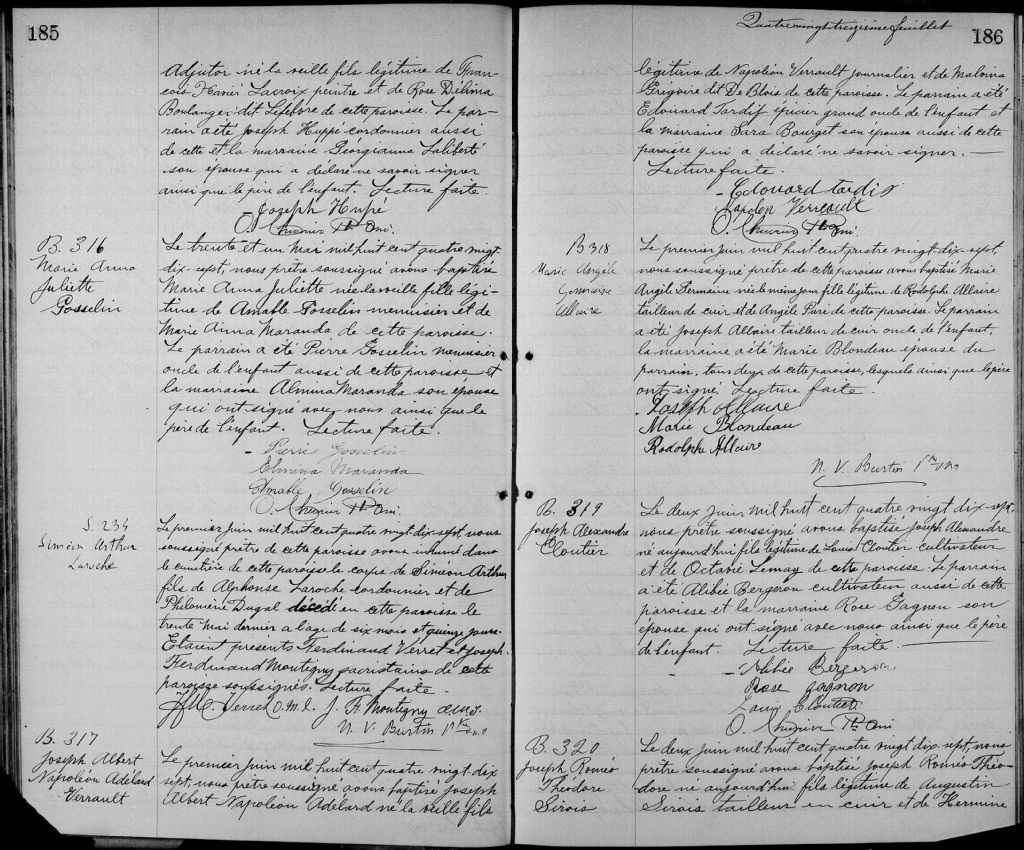 185
Adjutor né la veille fils légitime de Fran-
cois Xavier Lacroix peintre et de Rose Délima
Boulanger dit Lefebre de cette paroisse. Le par-
rain a été Joseph Huppé cordonnier aussi
de cette et la marraine Géorgianna Laliberté
son épouse qui a déclaré ne savoir signer
ainsi que le père de l'enfant. Lecture faite.
Joseph Hupé
O.
B. 316
Marie Anna
Juliette
Gosselin
Le trente et un Mai mil huit cent quatre vingt
dix-sept, nous prêtre soussigné avons baptisé
Marie Anna Juliette née la veille fille légi-
time de Amable Gosselin menuisier et de
Marie Anna Maranda de cette paroisse.
Le parrain a été Pierre Gosselin menuisier
oncle de l'enfant aussi de cette paroisse et
la marraine Almina Maranda son épouse
qui ont signé avec nous ainsi que le
père de l'enfant. Lecture faite.
Pierre Gosselin
Elmina Maranda
Amable Gosselin
O.
S. 234
Siméon Arthur
Laroche
Le premier juin mil huit cent quatre vingt dix-sept, nous
soussigné prêtre de cette paroisse avons inhumé dans
le cimetière de cette paroisse le corps de Siméon Arthur
fils de Alphonse Laroche cordonnier et de
Philomène Dugal décédé en cette paroisse le
trente Mai dernier a l'age de six mois et quinze jours.
Etaient presents Ferdinand Verret et Joseph
Ferdinand Montigny sacristains de cette
paroisse soussignés. Lecture faite.
Verret O.M.I. J. F. Montigny
N. V. Burtin Ptre O.M.I
B. 317
Joseph Albert
Napoléon Adélard
Verrault
Le premier juin mil huit cent quatre vingt dix
sept, nous prêtre soussigné avons baptisé Joseph
Albert Napoléon Adélard né la veille fils
Quatre vingt treizième feuillet
186
légitime de Napoléon Verrault journalier et de Malvina
Grégoire dit De Blois de cette paroisse. Le parrain a été
Edouard Tardif épicier grand oncle de l'enfant et
la marraine Sara Bourget son épouse aussi de cette
paroisse qui a déclaré ne savoir signer.
Lecture faite.
Edouard tardif
Verreault
O.
B 318
Marie Angèle
Germaine
Allaire
Le premier juin mil huit cent quatre vingt dix-sept,
nous soussigné prêtre de cette paroisse avons baptisé Marie
Angèle Germaine née le même jour fille légitime de Rodolphe Allaire
tailleur de cuir et de Angèle Paré de cette paroisse. Le parrain
a été Joseph Allaire tailleur de cuir oncle de l'enfant,
la marraine a été Marie Blondeau épouse du
parrain, tous deux de cette paroisse, lesquels ainsi que le père
ont signé. Lecture faite.
Joseph Allaire
Marie Blondeau
Rodolphe Allaire
N. V. Burtin Ptre O.M.I
B. 319
Joseph Alexandre
Cloutier
Le deux juin mil huit cent quatre vingt dix-sept,
nous prêtre soussigné avons baptisé Joseph Alexandre
né aujourd'hui fils légitime de Louis Cloutier cultivateur
et de Octavie Lemay de cette paroisse. Le parrain
a été Alibée Bergeron cultivateur aussi de cette
paroisse et la marraine Rose Gagnon son
épouse qui ont signé avec nous ainsi que le père
de l'enfant. Lecture faite.
Alibée Bergeron
Rose Gagnon
Louis Cloutier
O.
B. 320
Joseph Roméo
Théodore
Sirois
Le deux juin mil huit cent quatre vingt dix-sept, nous
prêtre soussigné avons baptisé Joseph Roméo Théo-
dore né aujourd'hui fils légitime de Augustin
Sirois tailleur en cuir et de Hermine